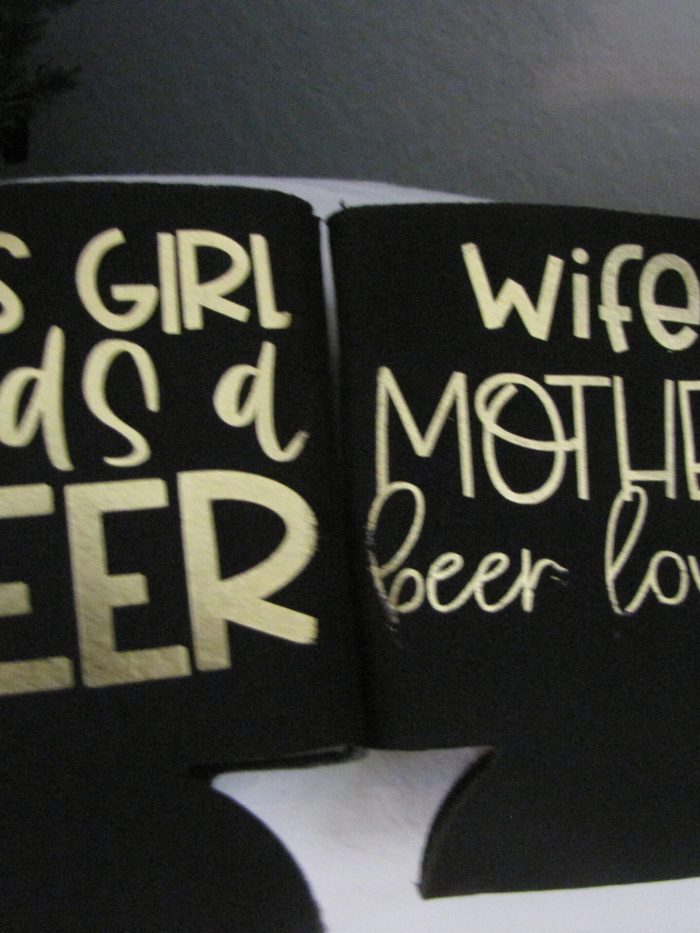 S GIRL
ds a
EER
wife
MOTHE
beer lov